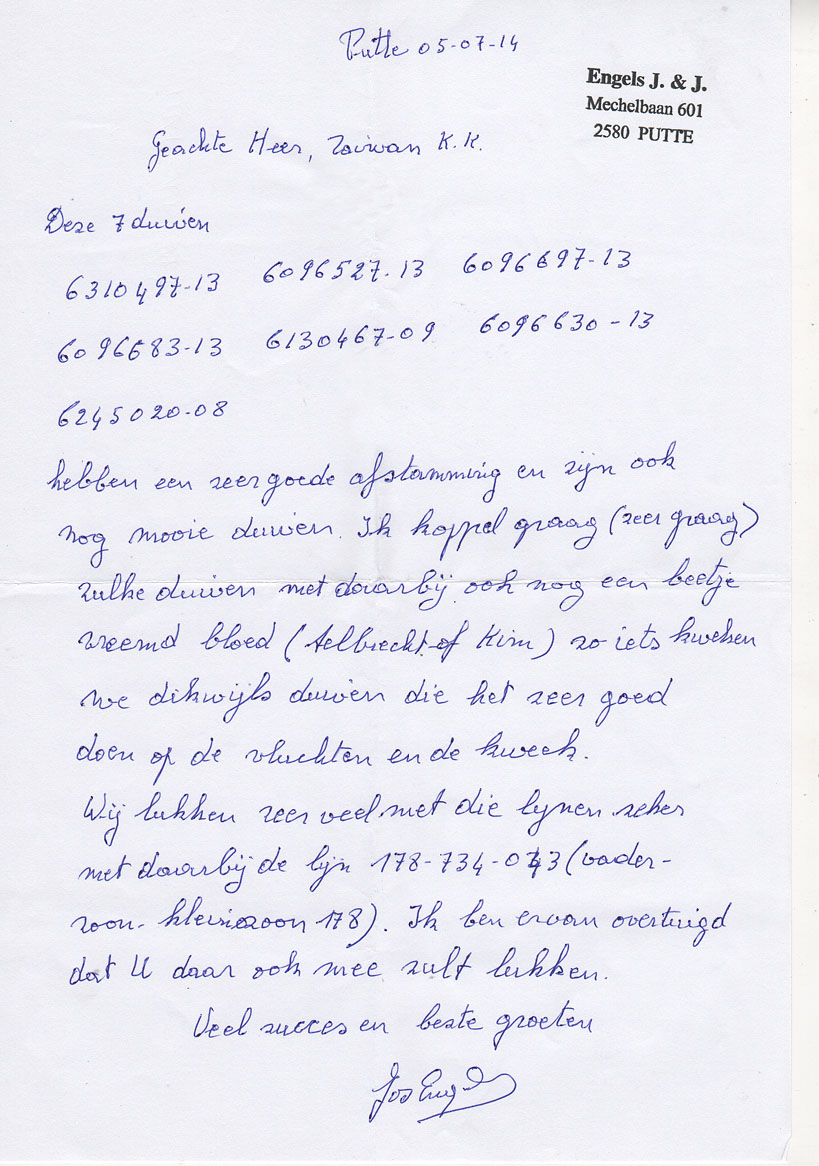 Putte 05-07-14
Engels J. & J.
Mechelbaan 601
2580 PUTTE
Geachte Heer, Taiwan K.K.
Deze 7 duiven
6310497-13 6096527-13 6096697-13
6096683-13 6130467-09 6096630-13
6245020-08
hebben een zeer goede afstamming en zijn ook
nog mooie duiven. Ik koppel graag (zeer graag)
zulke duiven met daarbij ook nog een beetje
vreemd bloed (Aelbrecht of Kim) zo iets kweken
we dikwijls duiven die het zeer goed
doen op de vluchten en de kweek.
Wij lukken zeer veel met die lijnen zeker
met daarbij de lijn 178-734-043 (vader-
zoon-kleinzoon 178). Ik ben ervan overtuigd
dat U daar ook mee zult lukken.
Veel succes en beste groeten
Jos Engels